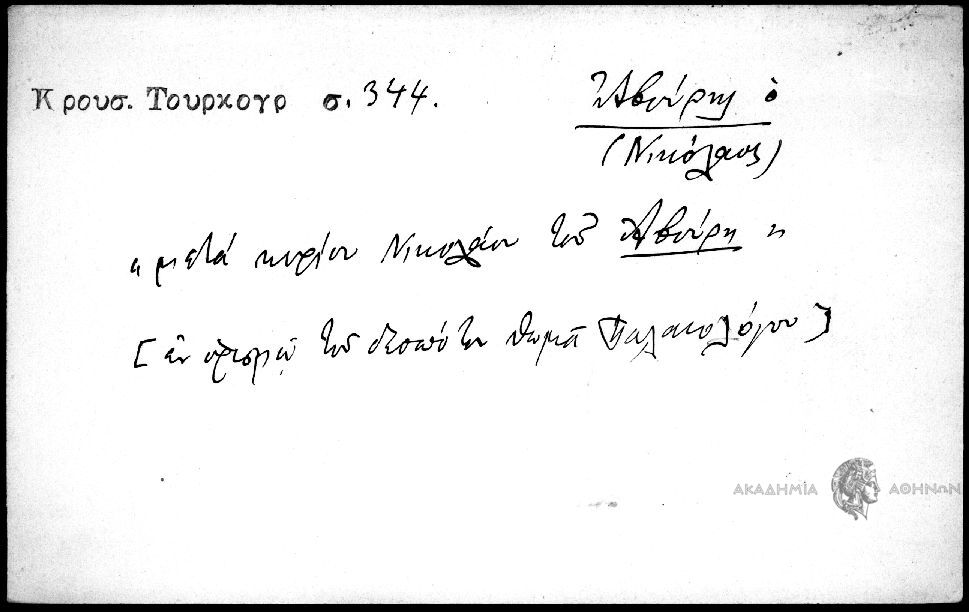 Κρουσ. Τουρκογρ σ. 344.
Ἀβούρης ὁ
(Νικόλαος)
"μετά κυρίου Νικολάου τοῦ Ἀβούρη"
[ἐν ὁρισμῷ τοῦ δεσπότου Θωμᾶ Παλαιολόγου]
ΑΚΑΔΗΜΙΑ ΑΘΗΝΩΝ